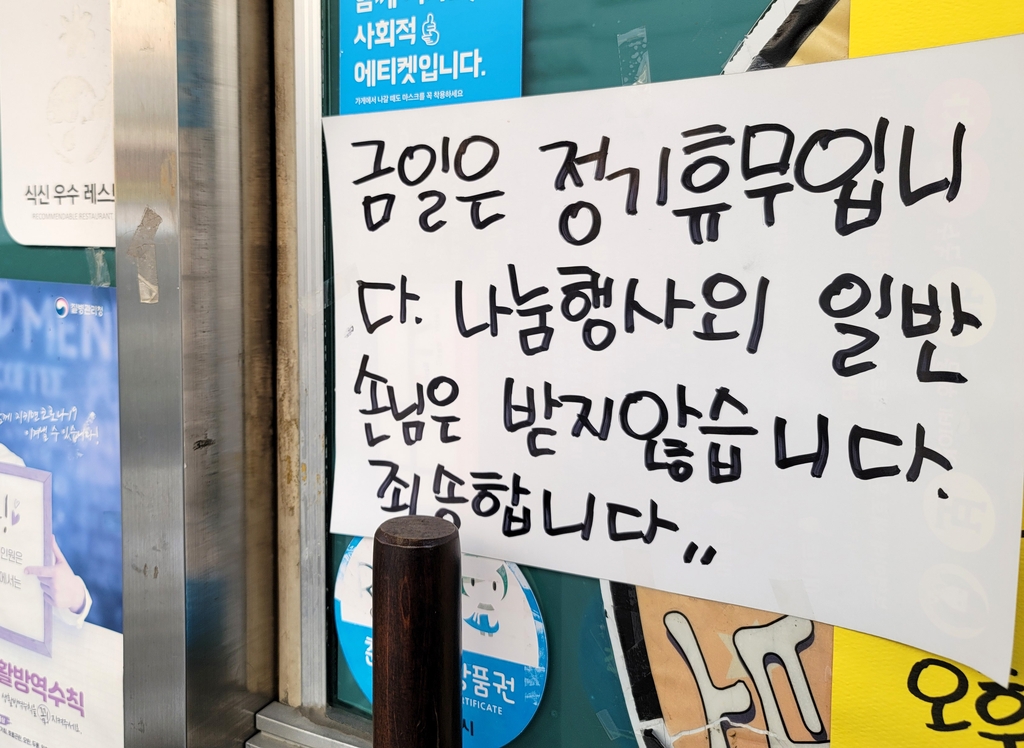 사회적
에티켓입니다.
가게에서 나갈 때도 마스크를 꼭 착용하세요
식신 우수 레스
RECOMMENDABLE RESTAURANT
금일은 정기휴무입니
다. 나눔행사외 일반
손님은 받지않습니다.
죄송합니다,,
질병관리청
이겨낼 수 있습니다!
활방역수칙
상품권
CERTIFICATE
시
오후